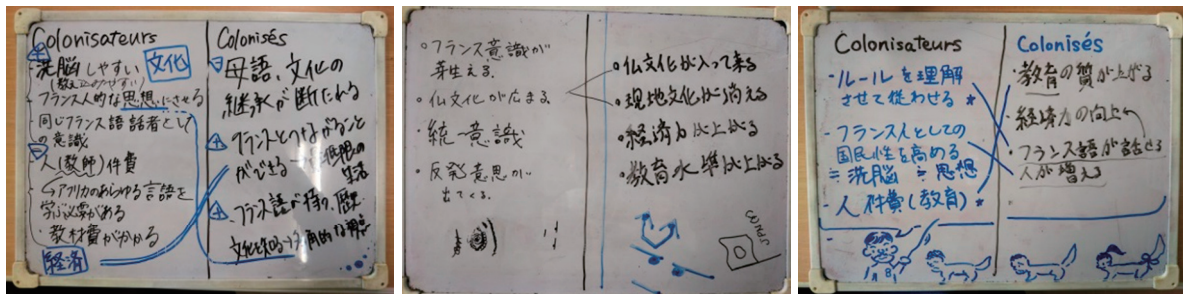 Colonisateurs
⊕
洗脳しやすい 文化
(教え込みやすい)
フランス人的な思想にさせる
・同じフランス語話者として
の意識
人(教師)件費
↳アフリカのあらゆる言語を
学ぶ必要がある
・教材費がかかる
経済
Colonisés
母語、文化の
継承が断たれる
⊕ フランスとつながること
ができる
生活
⊕ フランス語が持つ、歴史
文化を知る→多角的な視点
・フランス意識が
芽生える。
・仏文化が広まる
・統一意識
・反発意思が
出てくる。
・仏文化が入って来る
・現地文化が消える
・経済力が上がる
・教育水準が上がる
Colonisateurs
・ルールを理解
させて従わせる *
・フランス人としての
国民性を高める
≒洗脳 ≒思想
・人件費(教育) *
Colonisés
・教育の質が上がる
・経済力の向上
・フランス語が話せる
人が増える